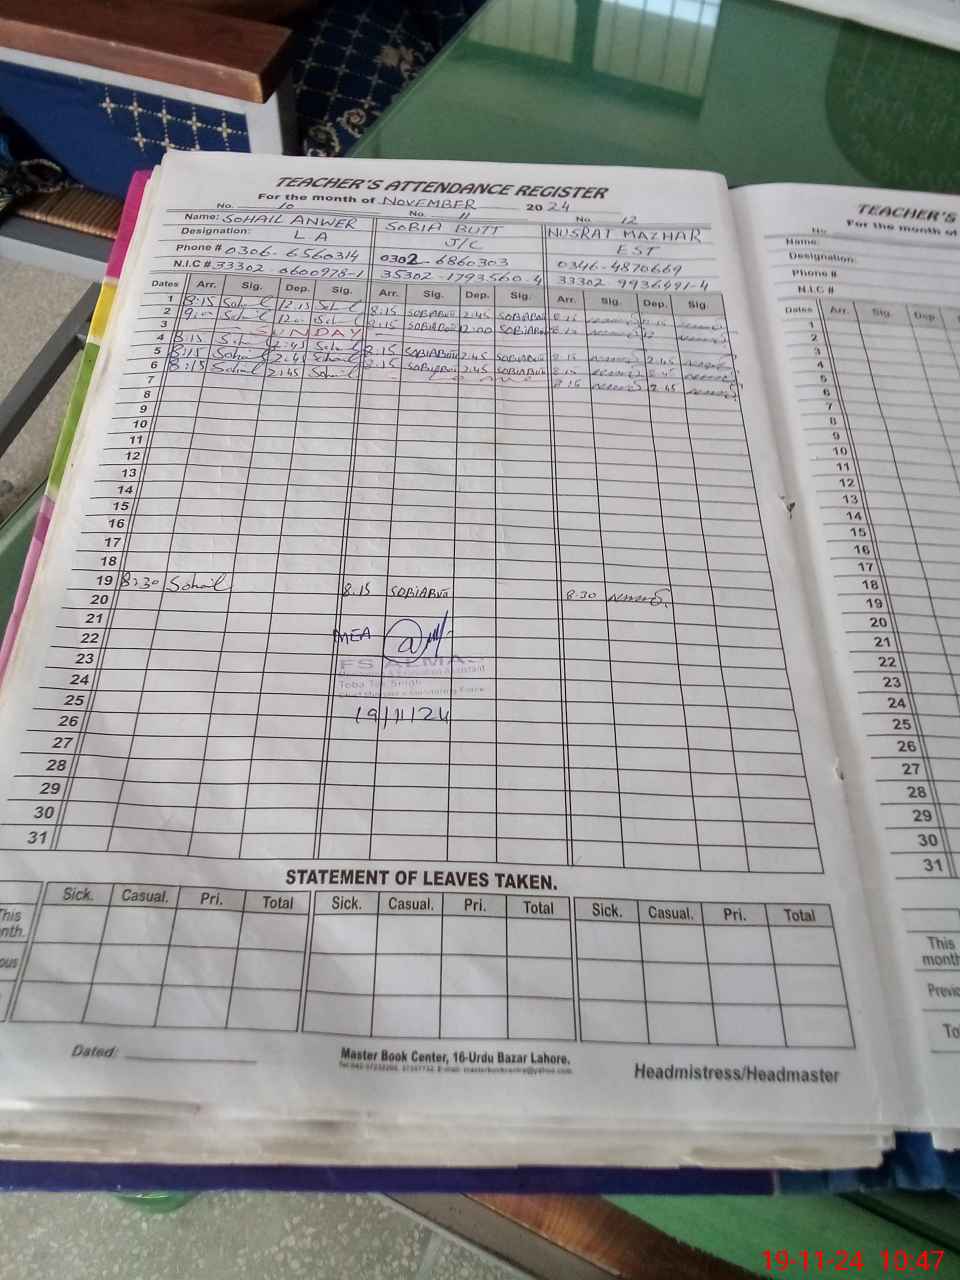 TEACHER'S ATTENDANCE REGISTER
For the month of NOVEMBER 2024
No. 10 No. 11 No. 12
Name: SOHAIL ANWER SOBIA BUTT NUSRAT MAZHAR
Designation: L A J/C EST
Phone # 0306-6560314 0302-6860303 0346-4870669
N.I.C # 33302-0600978-1 35302-1793560-4 33302 9936491-4
Dates Arr. Sig. Dep. Sig. Arr. Sig. Dep. Sig. Arr. Sig. Dep. Sig.
1 8:15 Sohail 12.15 Sohail 8.15 SOBIABUTT 2:45 SOBIABUTT 8.15
2 9:00 Sohail 8.15 SOBIABUTT 12:00 SOBIABUTT 8.15
3 SUNDAY
4 8:15 Sohail 2:45 Sohail 8.15 SOBIABUTT 2.45 SOBIABUTT 8.15 2.45
5 8:15 Sohail 2:45 Sohail 8.15 SOBIABUTT 2.45 SOBIABUTT 8.15
6 8:15 Sohail 2:45 Sohail 8.15 2.45
7
8
9
10
11
12
13
14
15
16
17
18
19 8:30 Sohail 8.15 SOBIABUTT 8.30
20
21
22 MEA
23
24 Toba Tek Singh
25
26 19/11/24
27
28
29
30
31
STATEMENT OF LEAVES TAKEN.
Sick. Casual. Pri. Total Sick. Casual. Pri. Total Sick. Casual. Pri. Total
This
nth.
ous
Dated:
Master Book Center, 16-Urdu Bazar Lahore.
Headmistress/Headmaster
TEACHER'S
For the month of
No.
Name:
Designation:
Phone #
N.I.C #
Dates Arr. Sig. Dep.
1
2
3
4
5
6
7
8
9
10
11
12
13
14
15
16
17
18
19
20
21
22
23
24
25
26
27
28
29
30
31
This
month
Previo
To
19-11-24 10:47